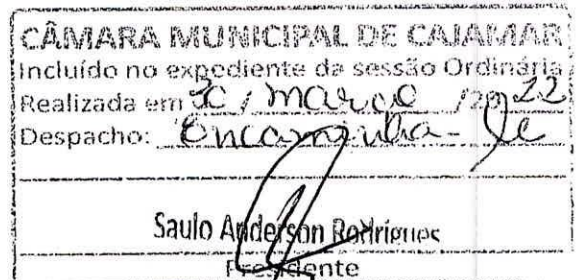 CÂMARA MUNICIPAL DE CAJAMAR
Incluído no expediente da sessão Ordinária
Realizada em 30 / março /2022
Despacho: Encaminha-se
Saulo Anderson Rodrigues
Presidente